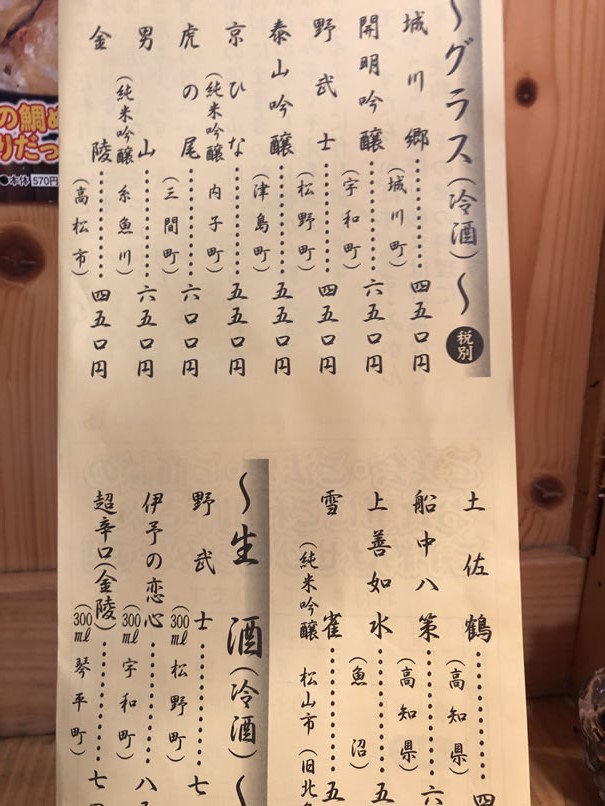 〜グラス(冷酒)〜 税別
城川郷(城川町)四五〇円
開明吟醸(宇和町)六五〇円
野武士(松野町)四五〇円
泰山吟醸(津島町)五五〇円
京ひな(純米吟醸 内子町)五五〇円
虎の尾(三間町)六〇〇円
男山(純米吟醸 糸魚川)六五〇円
金陵(高松市)四五〇円
土佐鶴(高知県)四
船中八策(高知県)六
上善如水(魚沼)五
雪雀(純米吟醸 松山市(旧北 五
〜生酒(冷酒)〜
野武士(300ml 松野町)七
伊予の恋心(300ml 宇和町)八
超辛口(金陵)(300ml 琴平町)七
の鯛め
りだっ
●本体570円